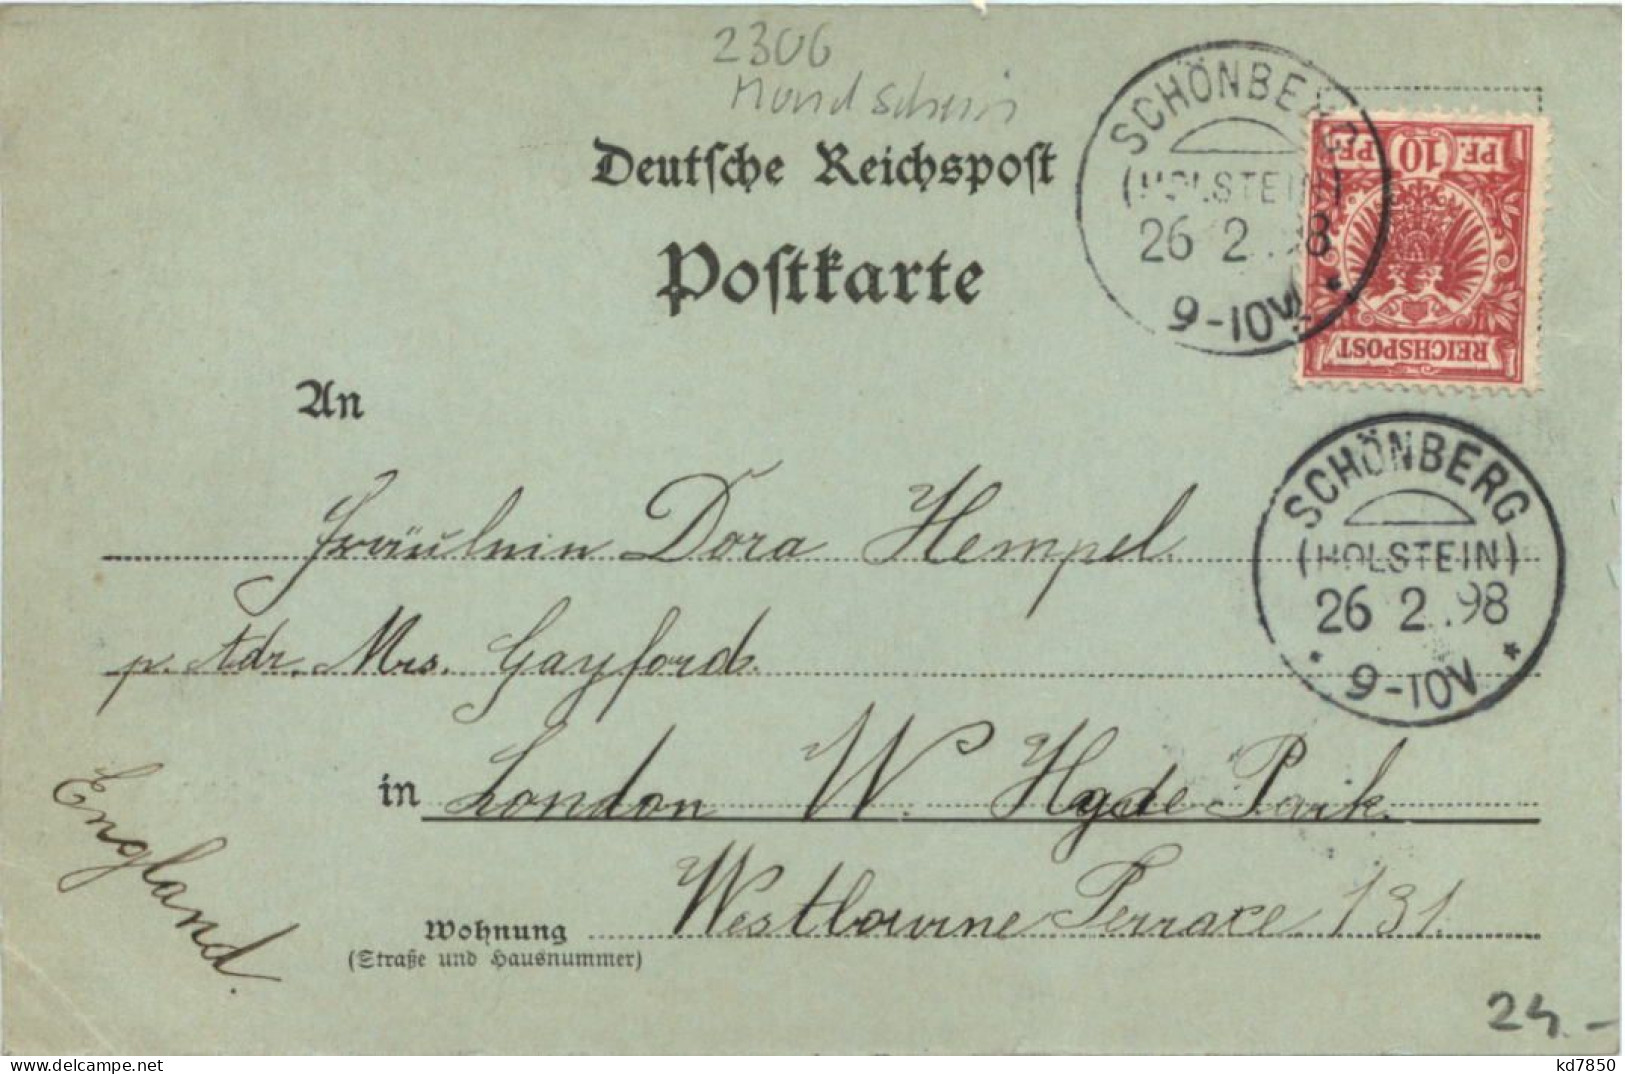 2306
Mondschein
Deutsche Reichspost
Postkarte
SCHÖNBERG
(HOLSTEIN)
26 2 .98
9-10V
PF. 10 PF.
REICHSPOST
An
Fräulein Dora Hempel.
p. Adr. Mrs. Gayford.
SCHÖNBERG
(HOLSTEIN)
26 2 .98
* 9-10V *
in London W. Hyde Park.
England.
Wohnung Westbourne Terrace 131.
(Straße und Hausnummer)
24.-
kd7850